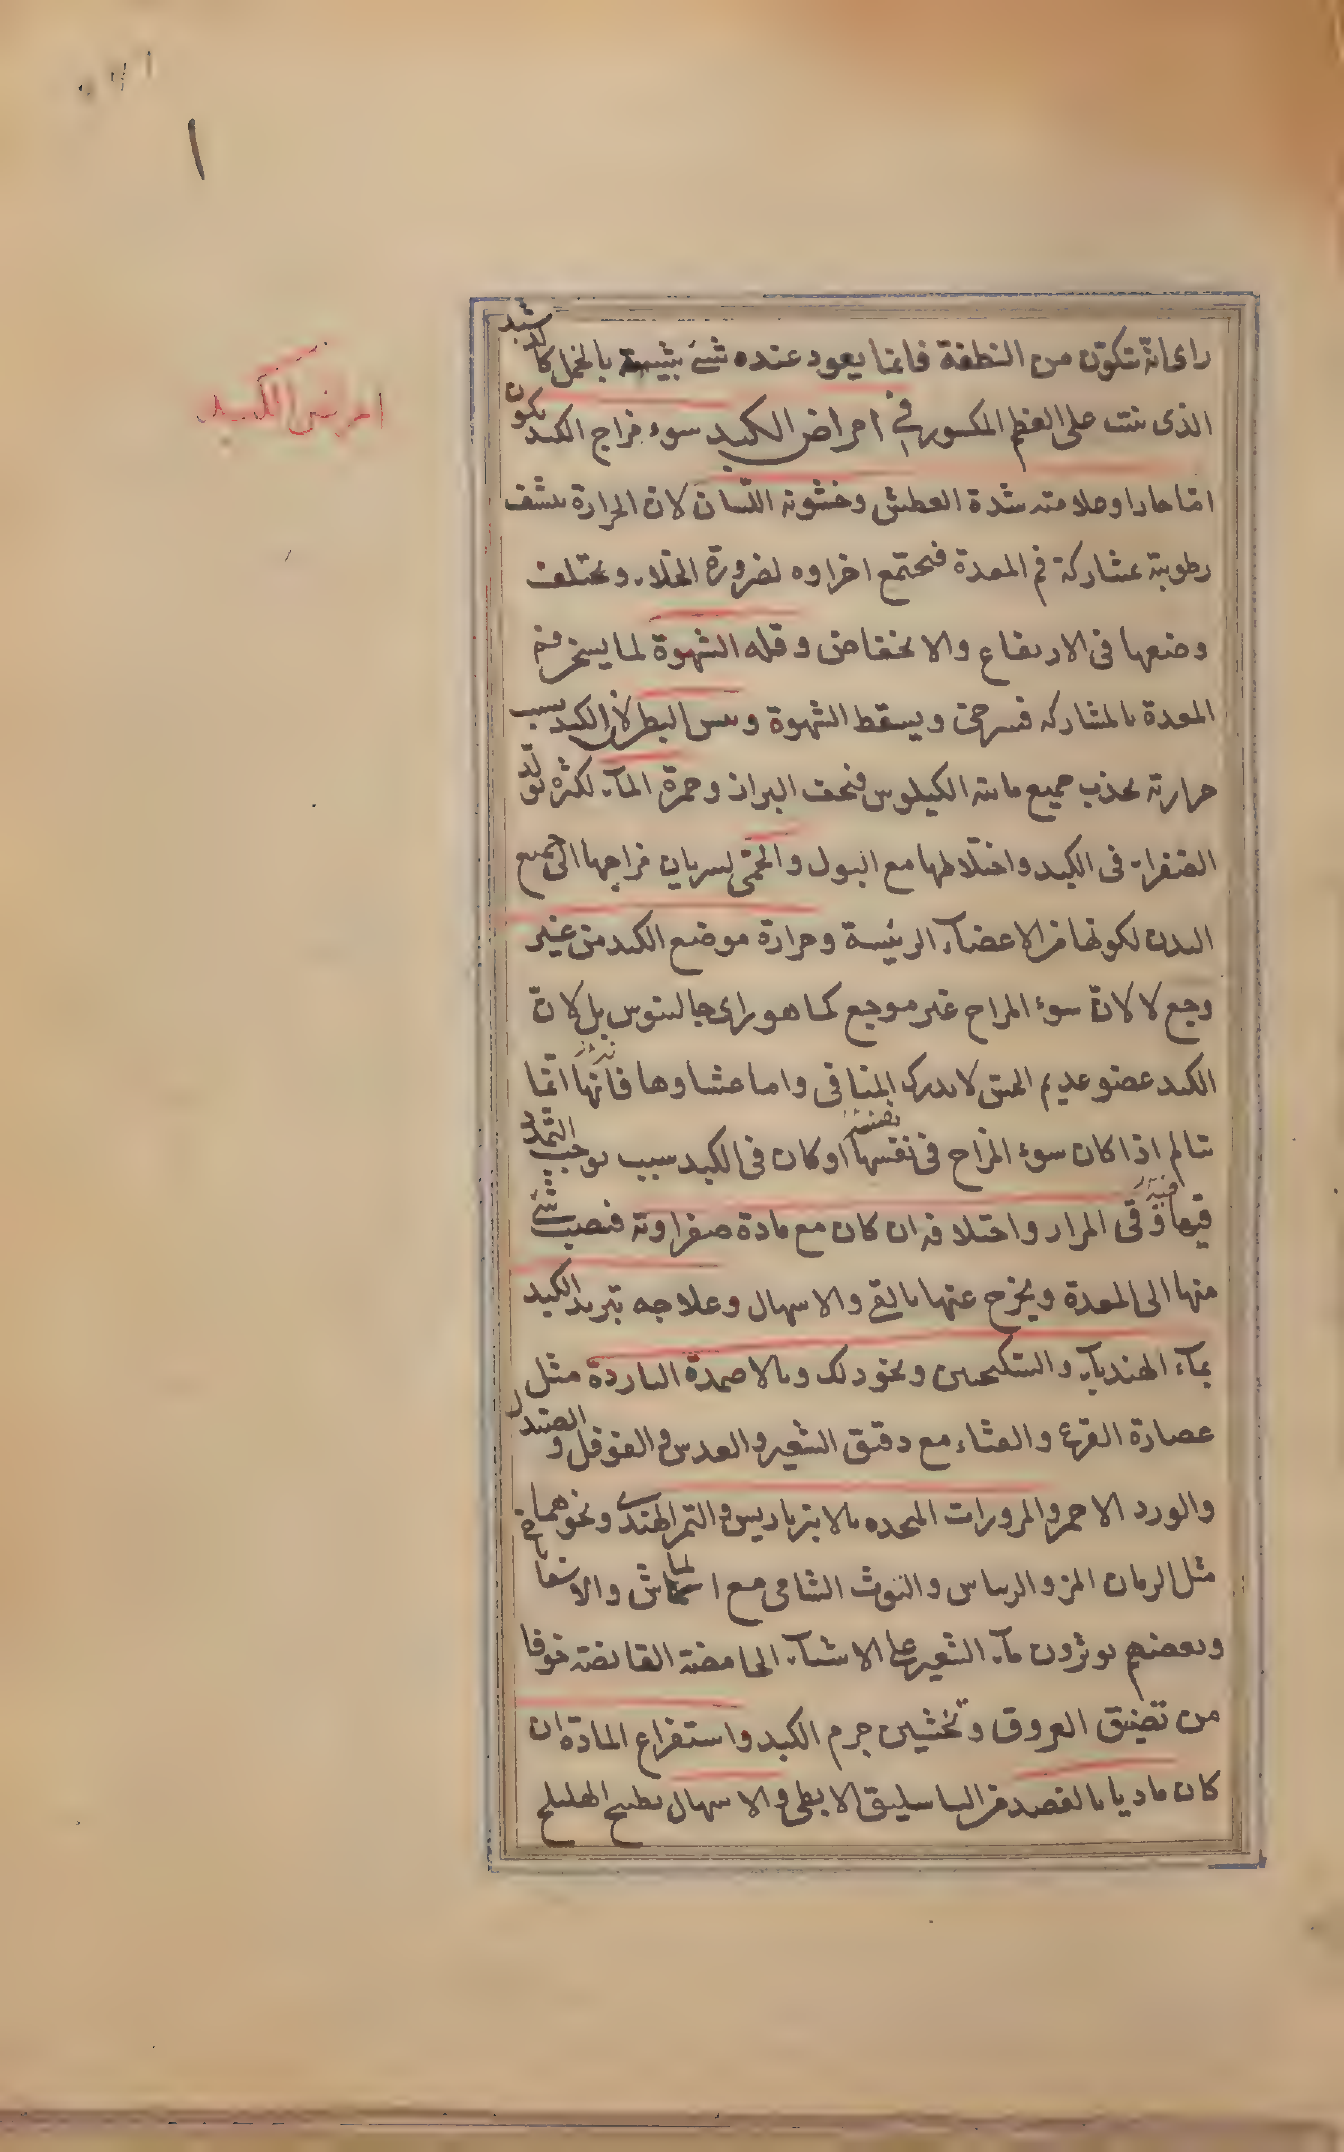 راى انه تتكون من النطفة فانما يعود عنده شئ شبيه بالخمل كالدشبد
الذى ينبت على العظم المكسور فى امراض الكبد سوء مزاج الكبد يكون
امراض الكبد
اما حارا وعلامته شدة العطش وخشونه اللسان لان الحرارة تنشف
رطوبته بمشاركة فم المعدة فيجتمع اجزاوه لضرورة الخلاء ويختلف
وضعها فى الارتفاع والانخفاض وقله الشهوة لما يسخن فم
المعدة بالمشاركه فيسرخى ويسقط الشهوة ويبس البطن لان الكبد بسبب
حرارته يجذب جميع مائية الكيلوس فيجف البراز وحمرة الماء لكثرة تولد
الصفراء فى الكبد واختلاطها مع البول والحمى لسريان مزاجها الى جميع
البدن لكونها من الاعضاء الرئيسة وحرارة موضع الكبد من غير
وجع لا لان سوء المزاج غير موجع كما هو راى جالينوس بل لان
الكبد عضو عديم الحس لا يدرك المنافى واما غشاوها فانها انما
تتالم اذا كان سوء المزاج فى نفسها او كان فى الكبد سبب يوجب التمدد
فيها وقى المرار واختلافه ان كان مع مادة صفراوية فينصب شئ
منها الى المعدة ويخرج عنها بالقى والاسهال وعلاجه تبريد الكبد
بماء الهندباء والسكنجبين ونحو ذلك وبالاضمدة الباردة مثل
عصارة القرع والقثاء مع دقيق الشعير والعدس والفوفل والصندل
والورد الاحمر والمزورات المتخذه بالانبرباريس والتمر الهندى ونحوهما
مثل الرمان المز والريباس والتوث الشامى مع الماش والاسفاناخ
وبعضهم يوثرون ماء الشعير على الاشياء الحامضة القابضة خوفا
من تضييق العروق وتخشين جرم الكبد واستفراغ المادة ان
كان ماديا بالفصد من الباسليق الابطى والاسهال بطبيخ الهليلج